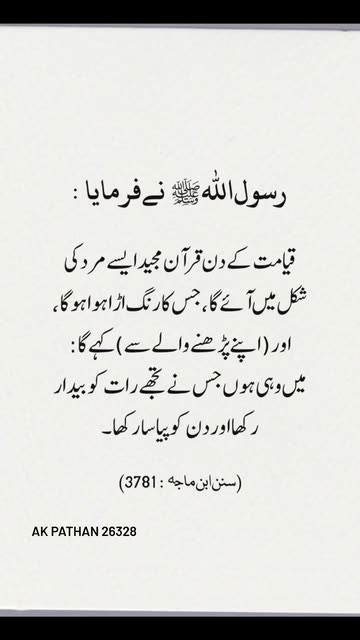 رسول اللہ ﷺ نے فرمایا :
قیامت کے دن قرآن مجید ایسے مرد کی
شکل میں آئے گا، جس کا رنگ اڑا ہوا ہو گا،
اور (اپنے پڑھنے والے سے) کہے گا :
میں وہی ہوں جس نے تجھے رات کو بیدار
رکھا اور دن کو پیاسا رکھا۔
(سنن ابن ماجہ : 3781)
AK PATHAN 26328